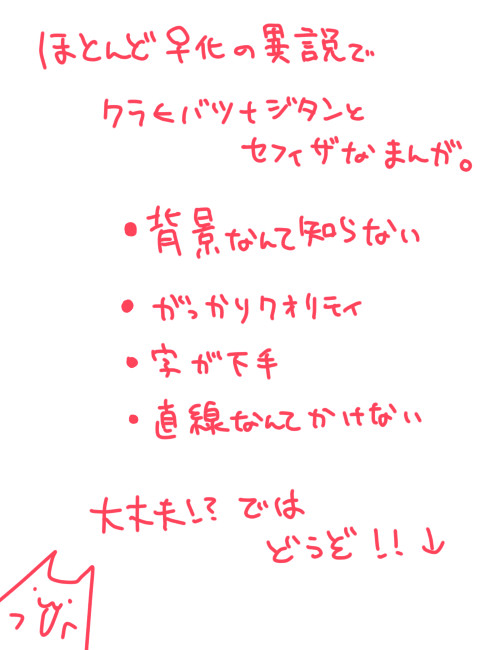 ほとんど♀化の異説で
クラ←バツ+ジタンと
セフィザなまんが。
• 背景なんて知らない
• がっかりクオリティ
• 字が下手
• 直線なんてかけない
大丈夫!? では
どうぞ!!↓